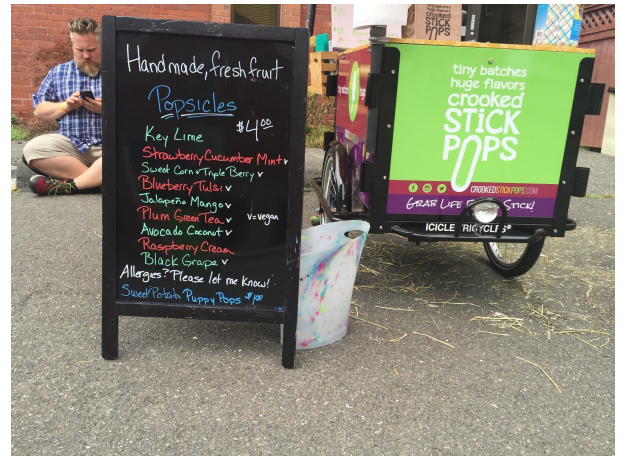 Handmade, fresh fruit
Popsicles
$4.00
Key Lime
Strawberry Cucumber Mint v
Sweet Corn & Triple Berry v
Blueberry Tulsi v
Jalapeño Mango v
Plum Green Tea v
v=vegan
Avocado Coconut v
Raspberry Cream
Black Grape v
Allergies? Please let me know!
Sweet Potato Puppy Pops $1.00
huge flavors
crooked
STICK
POPS
tiny batches
huge flavors
crooked
STiCK
POPS
CROOKEDSTICKPOPS.COM
GRAB LIFE STICK!
ICICLE TRICYCLES®